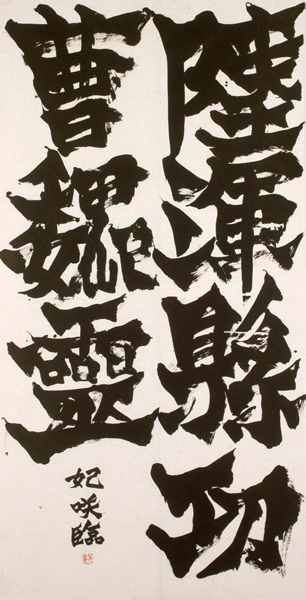 陸渾縣功
曹魏靈
妃咲臨